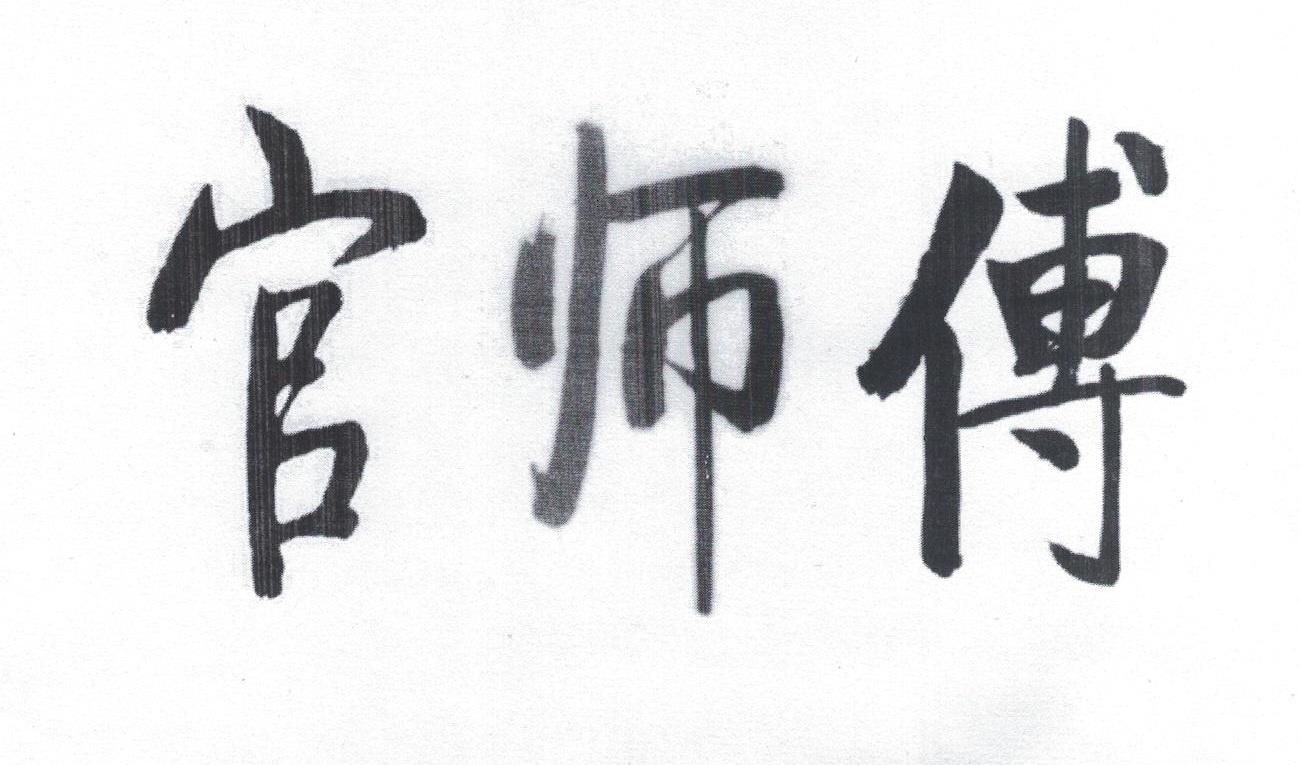 官师傅